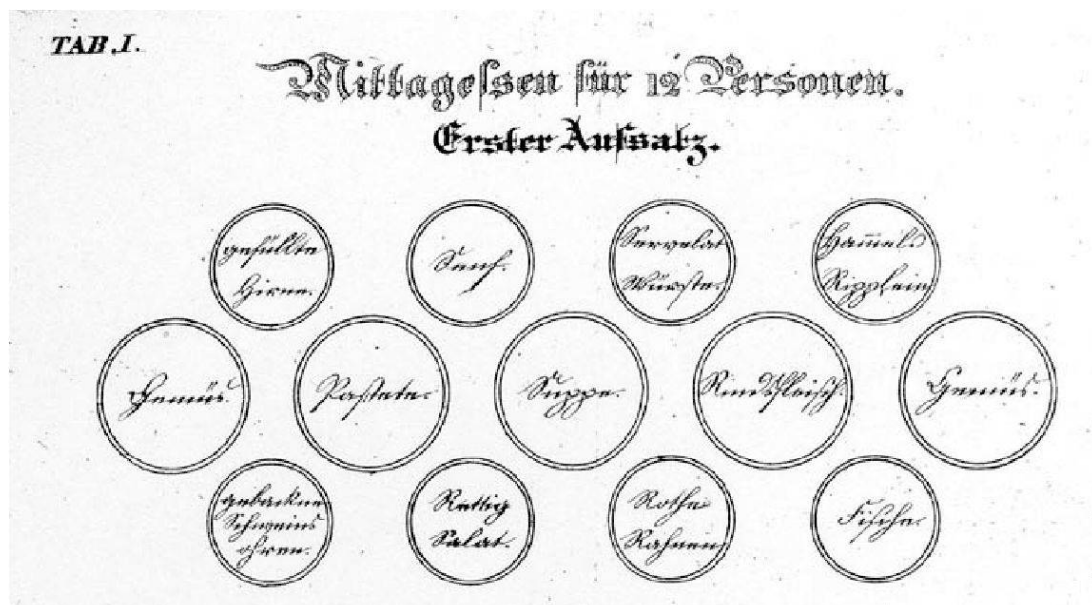 TAB. I.
Mittagessen für 12 Personen.
Erster Aufsatz.
gefüllte
Hirne.
Senf.
Servelat
Würste.
Ham̅el
Ripplein
Gemüs.
Pastete.
Suppe.
Rindfleisch.
Gemüs.
gebackne
Schweins
ohren.
Rettig
Salat.
Rothe
Rahnen
Fische.